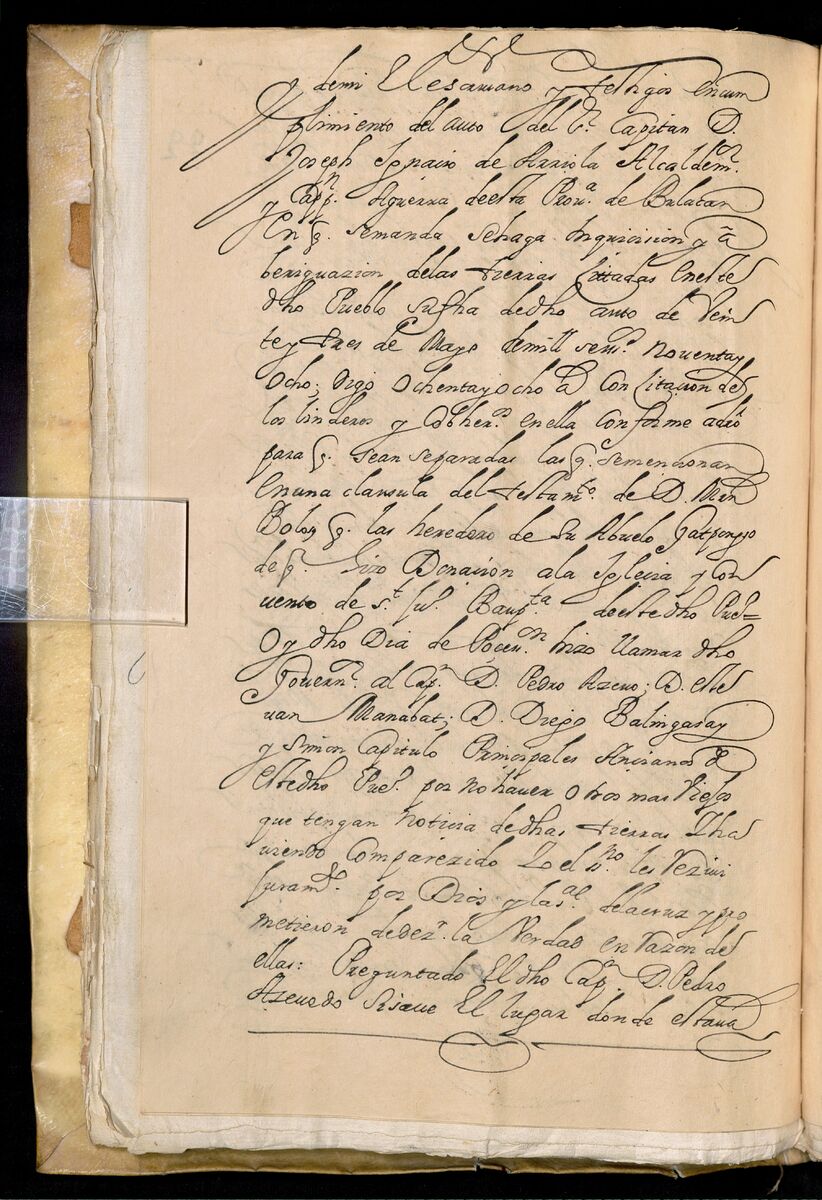 demi El escrivano y testigos En cum
plimiento del auto del Sr. Capitan D.
Joseph Ignacio de Arriola Alcaldem.or
y Capp.n Aguerra deesta Prou.a de Bulacan
En q. semanda sehaga Inquisicion y a
beriguazion delas tierras Citadas Eneste
dho Pueblo su fha dedho auto de Vein
te y tres de Mayo demill seis.s Noventay
Ocho; digo Ochentayocho a.s Con Citacion de
los linderos y Cobher.os en ella Conforme adro
para q. sean separadas las q. semensionan
En una clausula del testam.to de D. Mrn
Boloy q. las heredero de su Abuelo Gatpongjo
de q. hizo Donacion ala Iglecia y Con
uento de S.t Ju.o Baup.ta deestedho Pue.o
Oy dho Dia de Poceci.on hizo llamar dho
Govern.r al Cap.n D. Pedro Azevo; D. este
uan Manabat; D. Diego Balingaray
y simon Capitulo Prinsipales Ansianos de
estedho Pue.o por no haver Otros mas Viejos
que tengan noticia dedhas tierras Y ha
viendo Comparezido Yo el ss.no les Rezivi
Juram.to por Dios y la s.al delacruz y pro
metieron dedez.r la Verdad en razon de
ellas: Preguntado El dho Cap.n D. Pedro
Azevedo Sisave El lugar donde estava